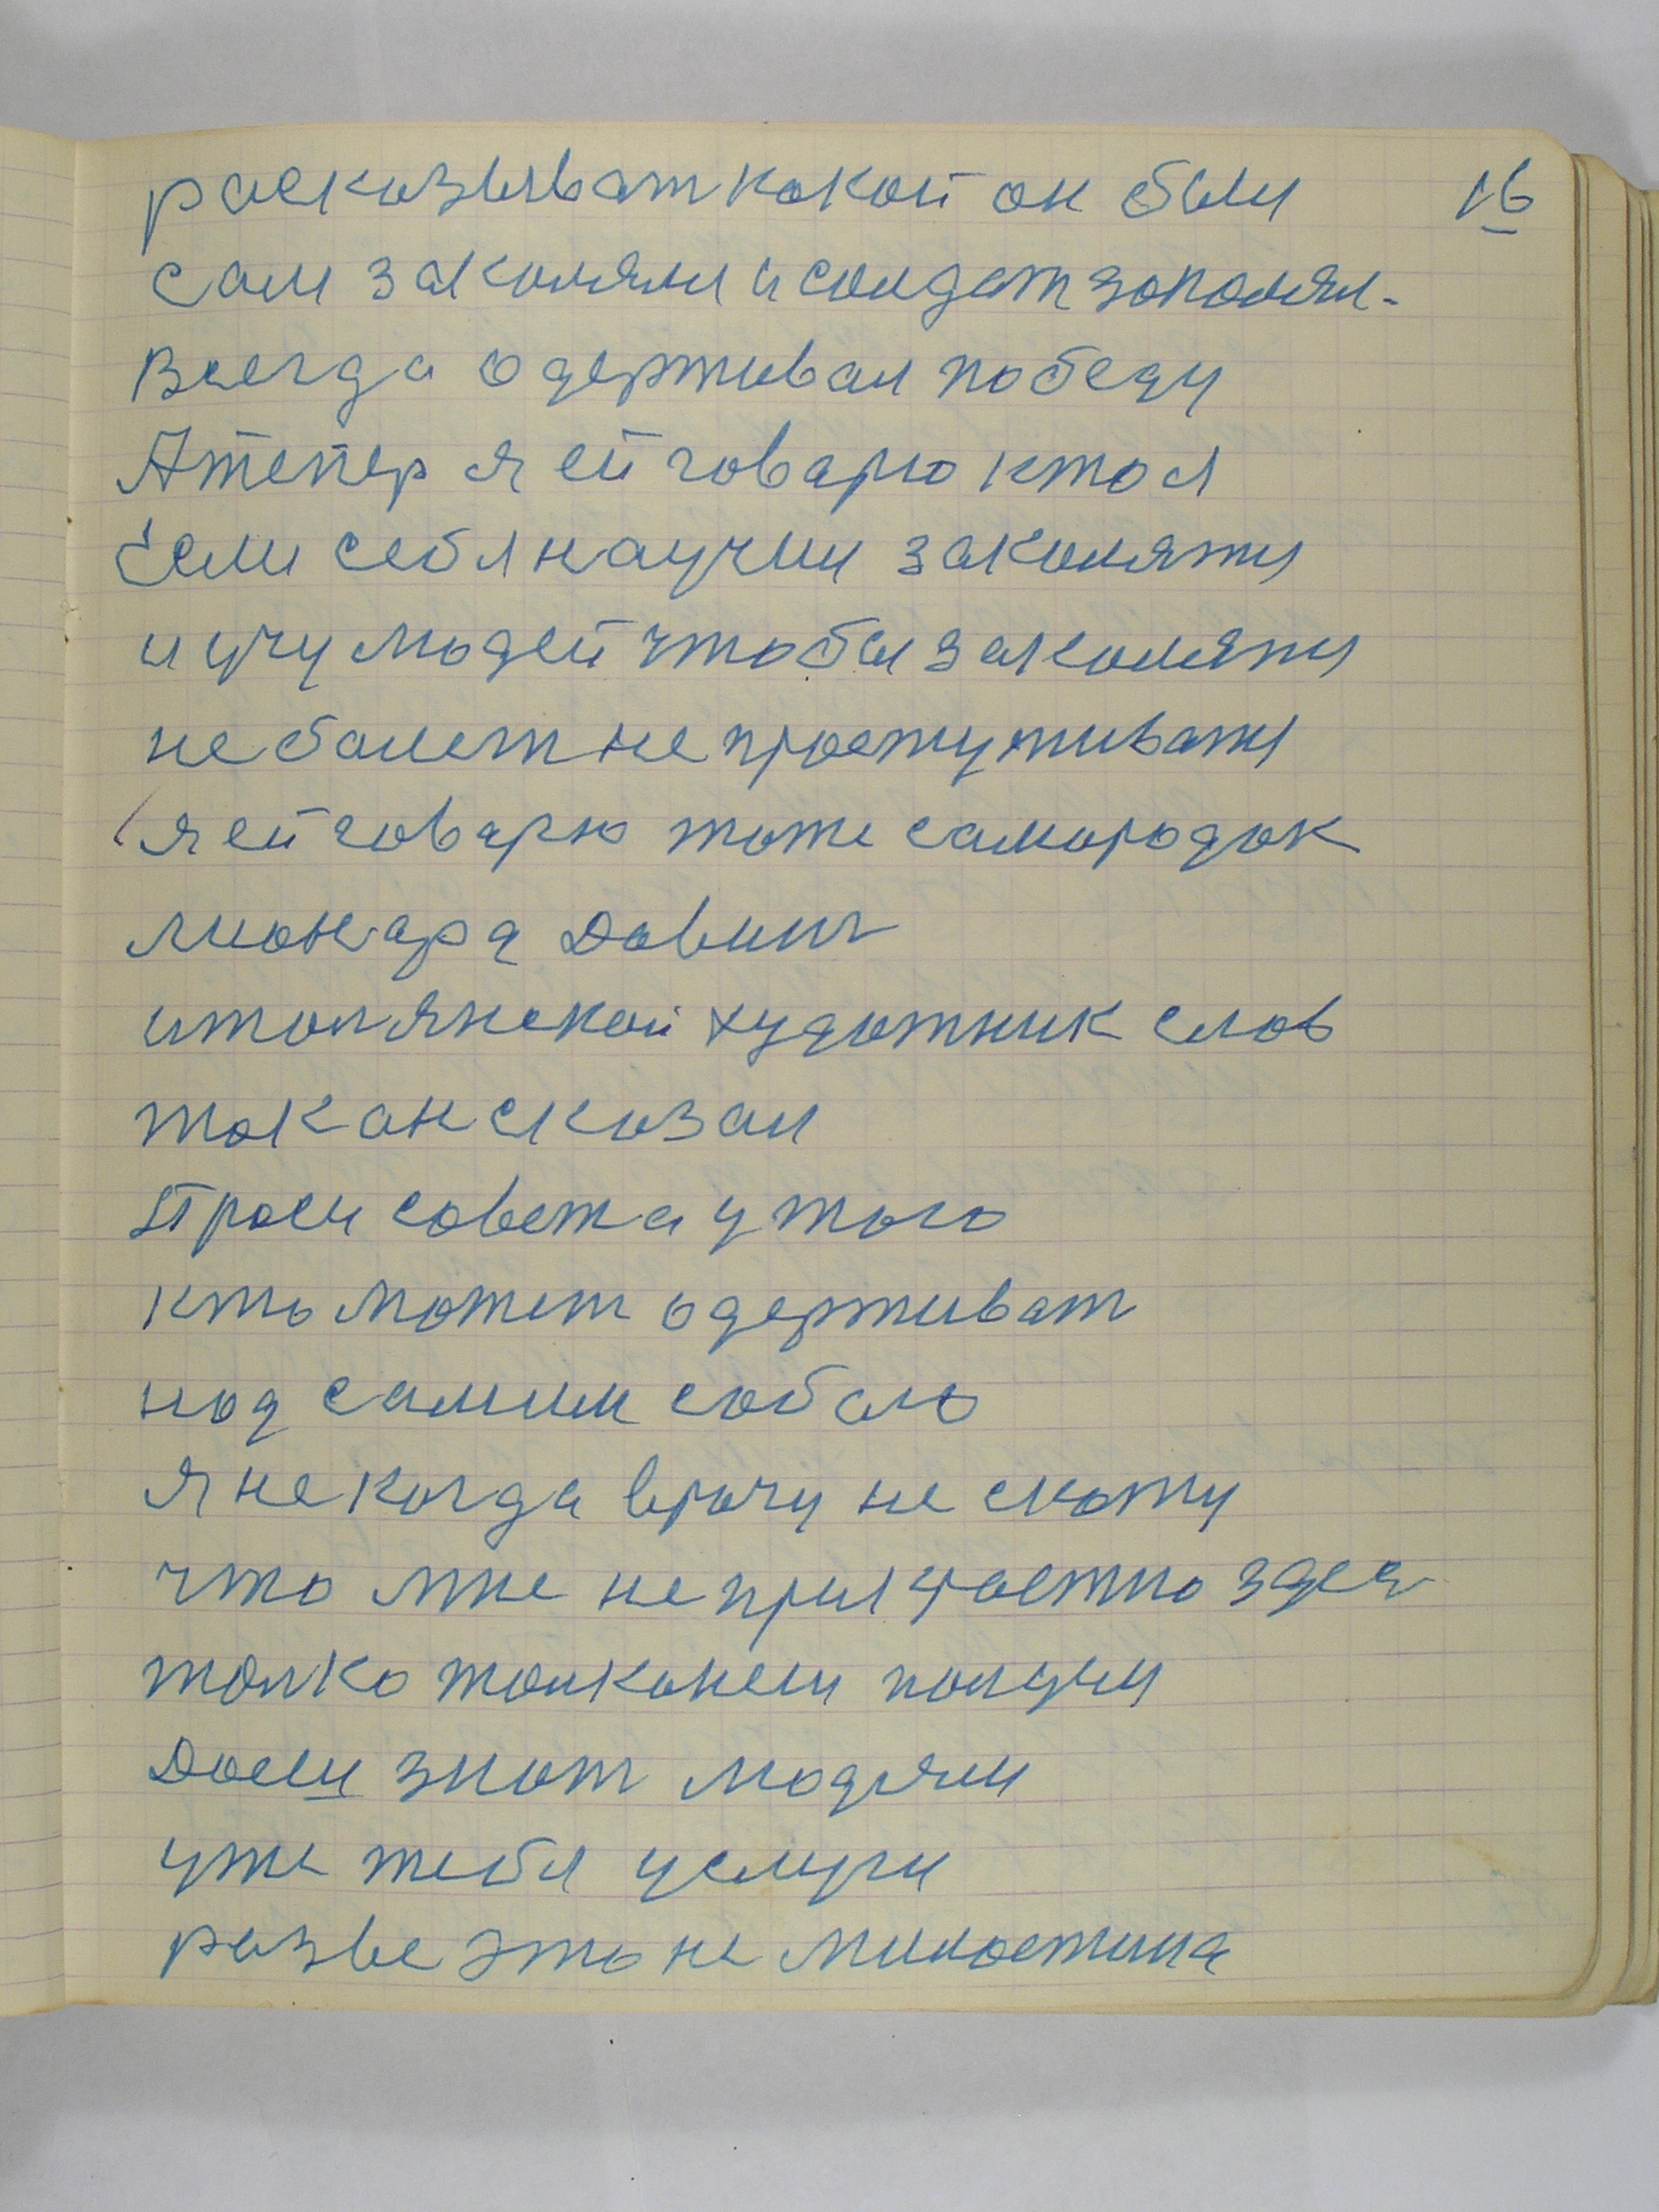 расказыват какой он был 16
сам закалял и солдат закалял.
Всегда одерживал победу
Атепер я ей говарю кто я
Если себя научил закаляти
и учу людей чтобы закаляти
не балет не простуживати
я ей говарю тоже самородок
лионард Давинч
итолянской художник слов
так он сказал
Проси совета у того
кто может одерживат
над самим собаю
Я некогда врачу не скажу
что мне не приятастно здес
толко толконеш получи
Доеш знат людям
уже тебя услуги
разве это не милостина